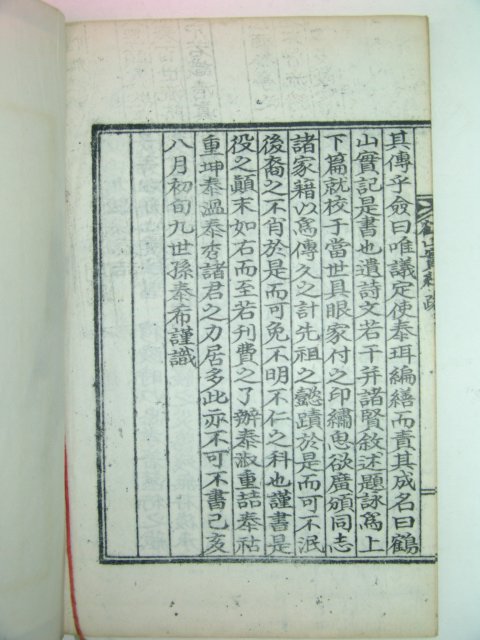 其傳乎僉曰唯議定使泰珥編繕而責其成名曰鶴
山實記是書也遺詩文若干幷諸賢敘述題詠爲上
下篇就校于當世具眼家付之印繡思欲廣頒同志
諸家藉以爲傳久之計先祖之懿蹟於是而可不泯
後裔之不肖於是而可免不明不仁之科也謹書是
役之顚末如右而至若刋費之了辦泰淑重喆泰祜
重坤泰溫泰杏諸君之力居多此亦不可不書己亥
八月初旬九世孫泰布謹識